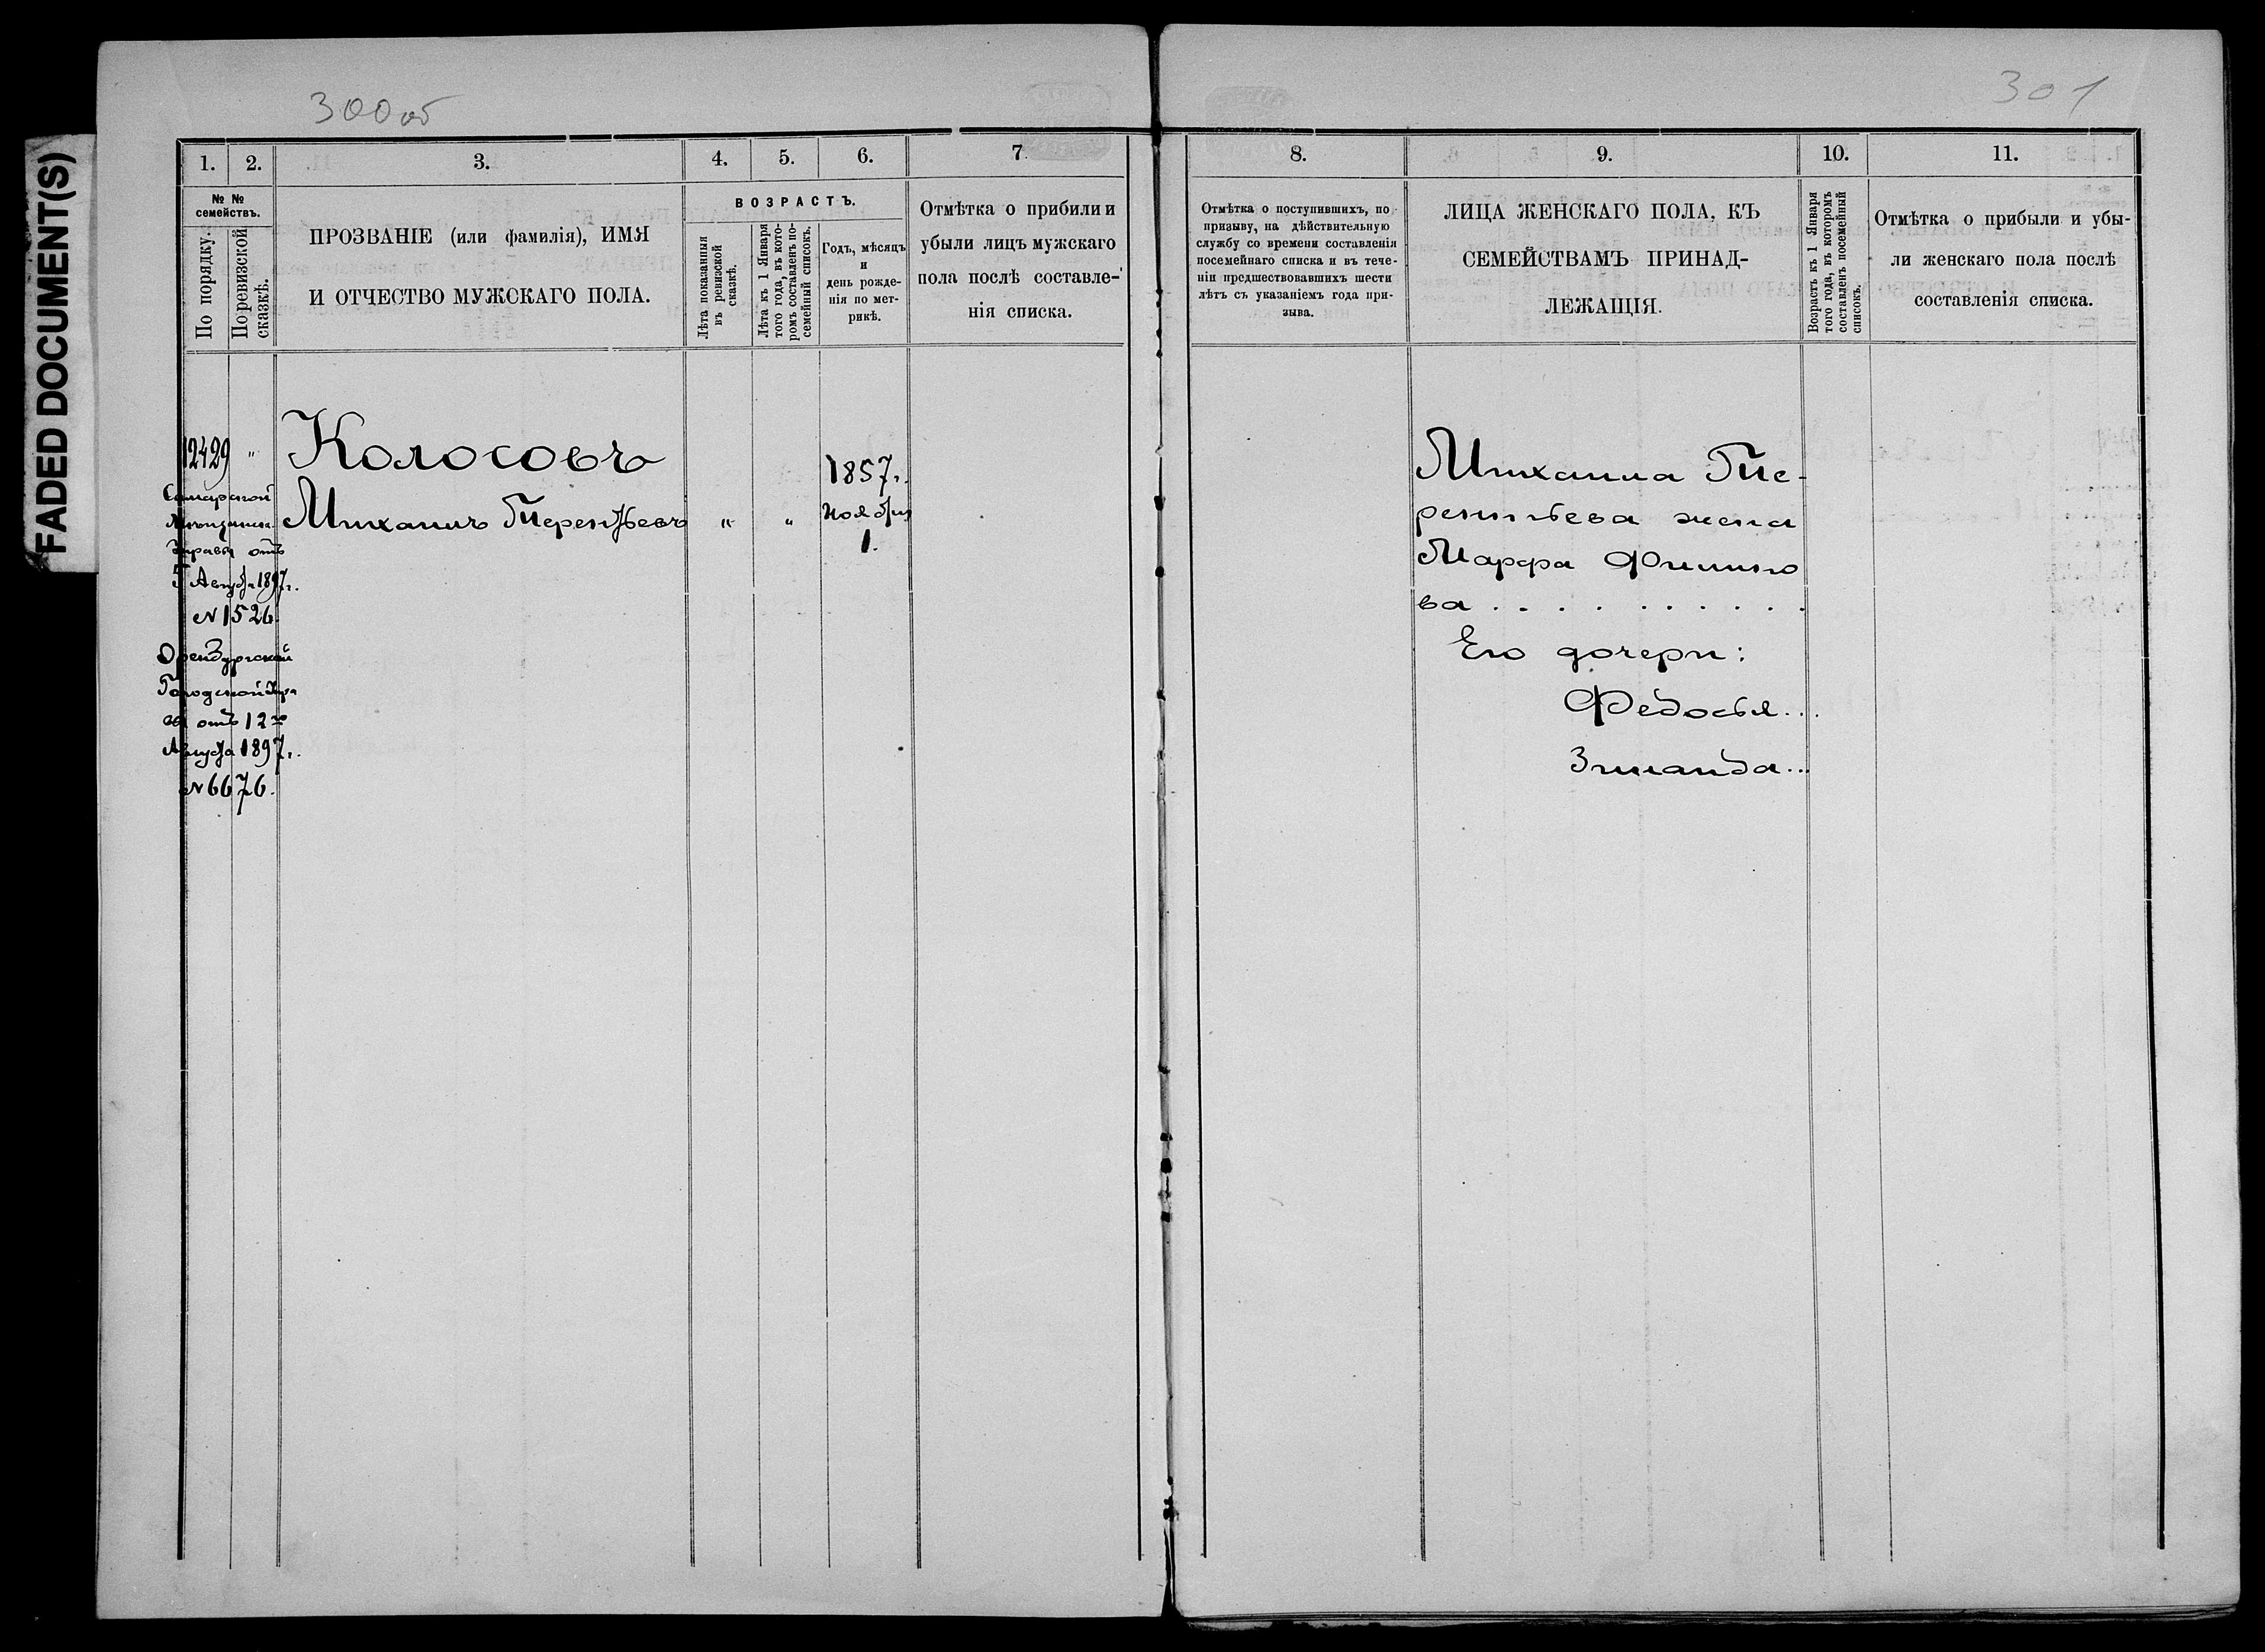 FADED DOCUMENT(S)
300 об
301
1.
2.
3.
4.
5.
6.
7.
8.
9.
10.
11.
№ №
семействъ.
По порядку.
По ревизской
сказкѣ.
ПРОЗВАНІЕ (или фамилія), ИМЯ
И ОТЧЕСТВО МУЖСКАГО ПОЛА.
ВОЗРАСТЪ.
Лѣта показанныя
въ ревизской
сказкѣ.
Лѣта къ 1 Января
того года, въ кото-
ромъ составленъ по-
семейный списокъ.
Годъ, мѣсяцъ
и
день рожде-
нія по мет-
рикѣ.
Отмѣтка о прибыли и
убыли лицъ мужскаго
пола послѣ составле-
нія списка.
Отмѣтка о поступившихъ, по
призыву, на дѣйствительную
службу со времени составленія
посемейнаго списка и въ тече-
ніи предшествовавшихъ шести
лѣтъ съ указаніемъ года при-
зыва.
ЛИЦА ЖЕНСКАГО ПОЛА, КЪ
СЕМЕЙСТВАМЪ ПРИНАД-
ЛЕЖАЩІЯ.
Возрастъ къ 1 Января
того года, въ которомъ
составленъ посемейный
списокъ.
Отмѣтка о прибыли и убы-
ли женскаго пола послѣ
составленія списка.
12429 "
Самарской
Управы отъ
5 Августа 1897 г.
№ 1526.
Оренбургской
Городской Упра
вы отъ 12го
Августа 1897 г.
№ 6676.
Колосовъ
Михаилъ Терентьевъ " "
1857 г.
Ноября
1.
Михаила Те-
рентьева жена
Марфа Филипо
ва . . . . . . . . . .
Его дочери:
Федосья...
Зинаида...